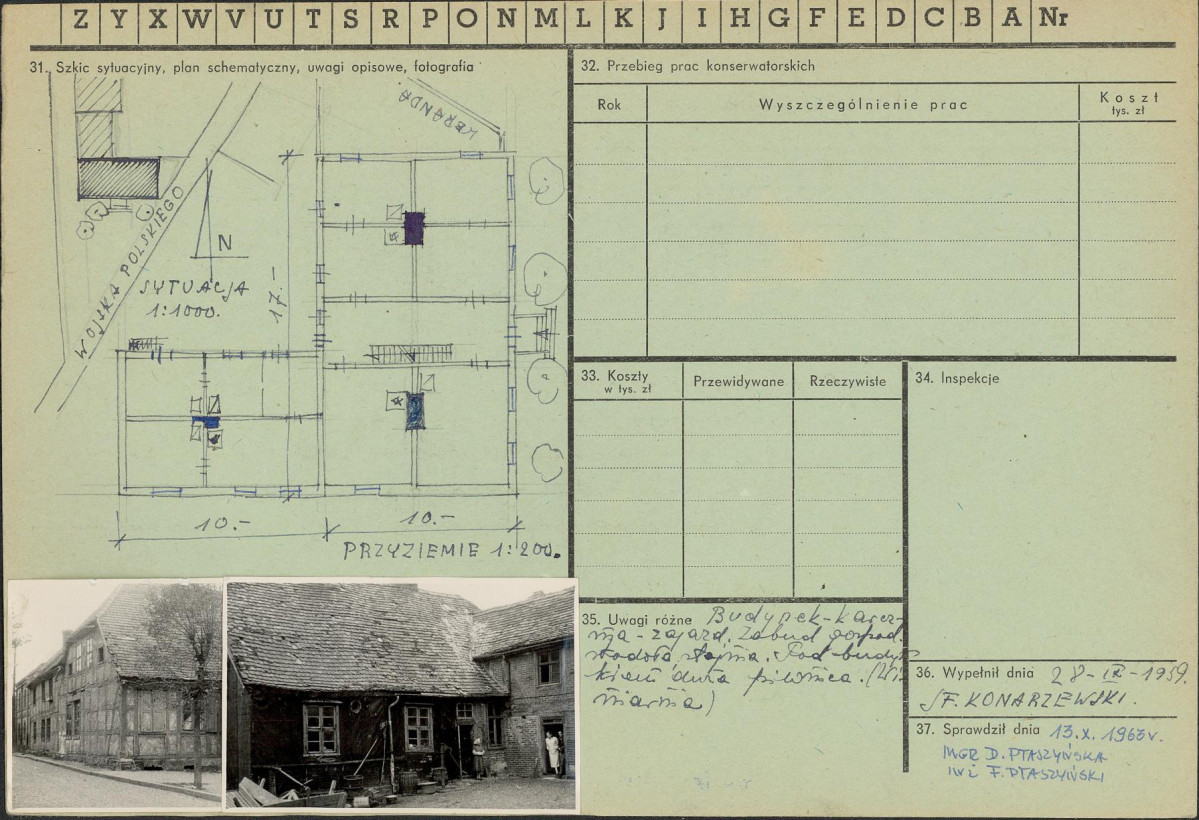 Z Y X W V U T S R P O N M L K J I H G F E D C B A Nr
31. Szkic sytuacyjny, plan schematyczny, uwagi opisowe, fotografia
WERANDA
WOJSKA POLSKIEGO
N
SYTUACJA
1:1000.
17.-
10.-
10.-
PRZYZIEMIE 1:200.
32. Przebieg prac konserwatorskich
Rok
Wyszczególnienie prac
Koszt
tys. zł
33. Koszty
w tys. zł
Przewidywane
Rzeczywiste
34. Inspekcje
35. Uwagi różne Budynek-karcz-
ma - zajazd. Zabud gospod.
stodoła stajnia. Pod budyn
kiem duża piwnica. (Wi
niarnia)
36. Wypełnił dnia 28-IX-1959.
F. KONARZEWSKI.
37. Sprawdził dnia 13.X.1963 r.
MGR D. PTASZYŃSKA
INŻ F. PTASZYŃSKI